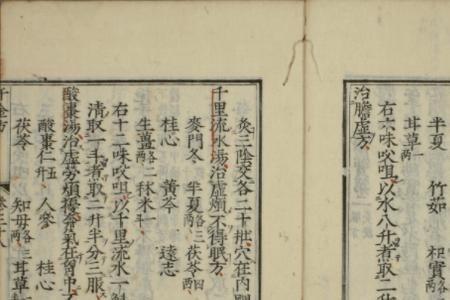 半夏 竹茹 枳實各二兩
甘草一兩
右六味㕮咀以水八升煮取二
治膽虛方
灸三陰交各二十壯穴在內
千里流水湯治虛煩不得眠方
麥門冬 半夏各三兩 茯苓四兩
桂心 黃芩 遠志
生薑各二兩 秫米一升
右十二味㕮咀以千里流水一
清取一斗煮取二升半分三服
酸棗湯治虛勞煩擾奔氣在胸中不
酸棗仁五升 人參 桂心
茯苓 知母各二兩 甘草
千金方 卷三十八